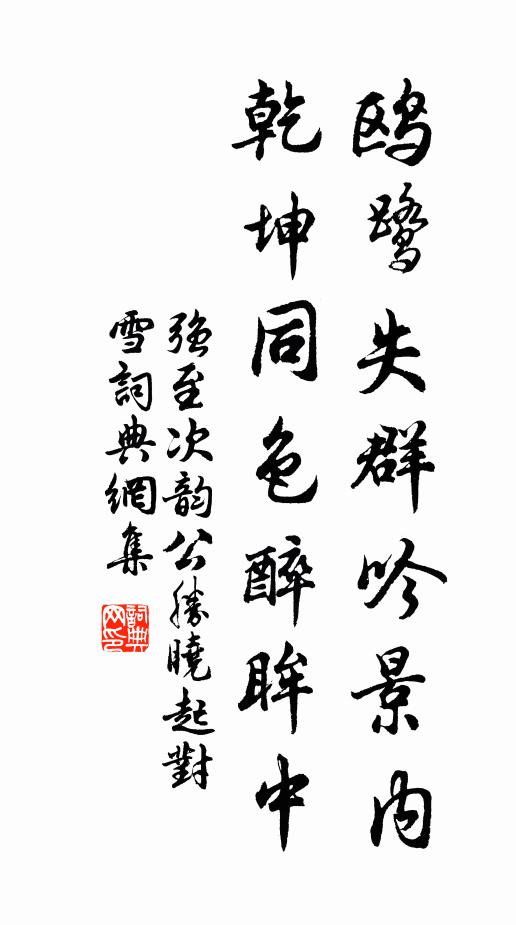 鸥鹭失群吟景内
乾坤同色醉眸中
強至次韵公勝曉起對
雪詞典網集
詞典
网印